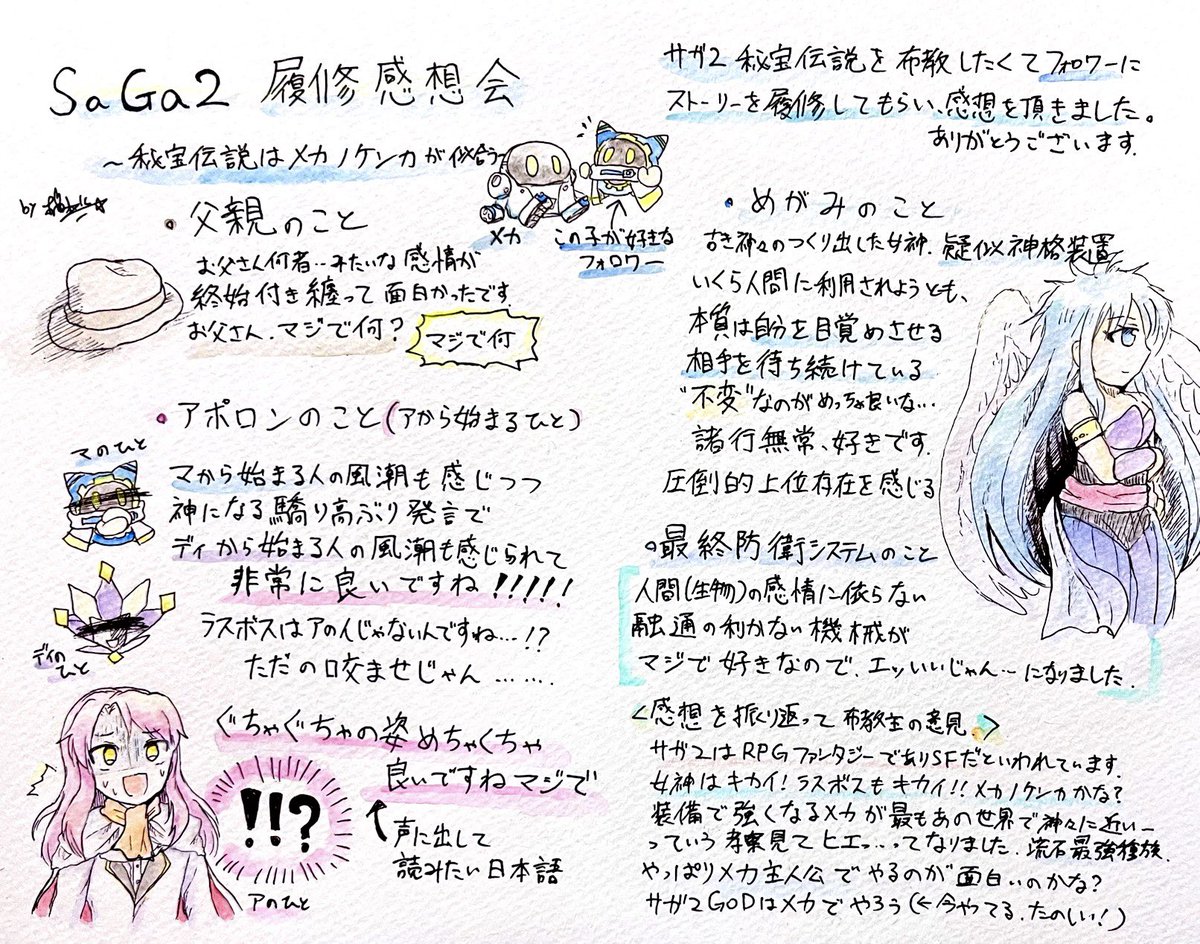 SaGa2 履修感想会
～秘宝伝説はメカノケンカが似合う～
by
メカ
この子が好きな
フォロワー
サガ2 秘宝伝説を布教したくてフォロワーに
ストーリーを履修してもらい、感想を頂きました。
ありがとうございます.
・父親のこと
お父さん何者…みたいな感情が
終始付き纏って面白かったです.
お父さん.マジで何?
マジで何
・アポロンのこと(アから始まるひと)
マのひと
マから始まる人の風潮も感じつつ
神になる驕り高ぶり発言で
ディから始まる人の風潮も感じられて
非常に良いですね!!!!!
ディの
ひと
ラスボスはアの人じゃないんですね…!?
ただの咬ませじゃん……..
ぐちゃぐちゃの姿めちゃくちゃ
良いですねマジで
!!?
アのひと
声に出して
読みたい日本語
・めがみのこと
古き神々のつくり出した女神.疑似神格装置
いくら人間に利用されようとも、
本質は自分を目覚めさせる
相手を待ち続けている
"不変"なのがめっちゃ良いな…
諸行無常、好きです.
圧倒的上位存在を感じる
・最終防衛システムのこと
人間(生物)の感情に依らない
融通の利かない機械が
マジで好きなので、エッいいじゃん…になりました.
<感想を振り返って布教主の意見>
サガ2はRPGファンタジーでありSFだといわれています.
女神はキカイ!ラスボスもキカイ!!メカノケンカかな?
装備で強くなるメカが最もあの世界で神々に近い—
っていう考察見てヒエッ…ってなりました.流石最強種族.
やっぱりメカ主人公でやるのが面白いのかな?
サガ2GODはメカでやろう(←今やってる.たのしい!)